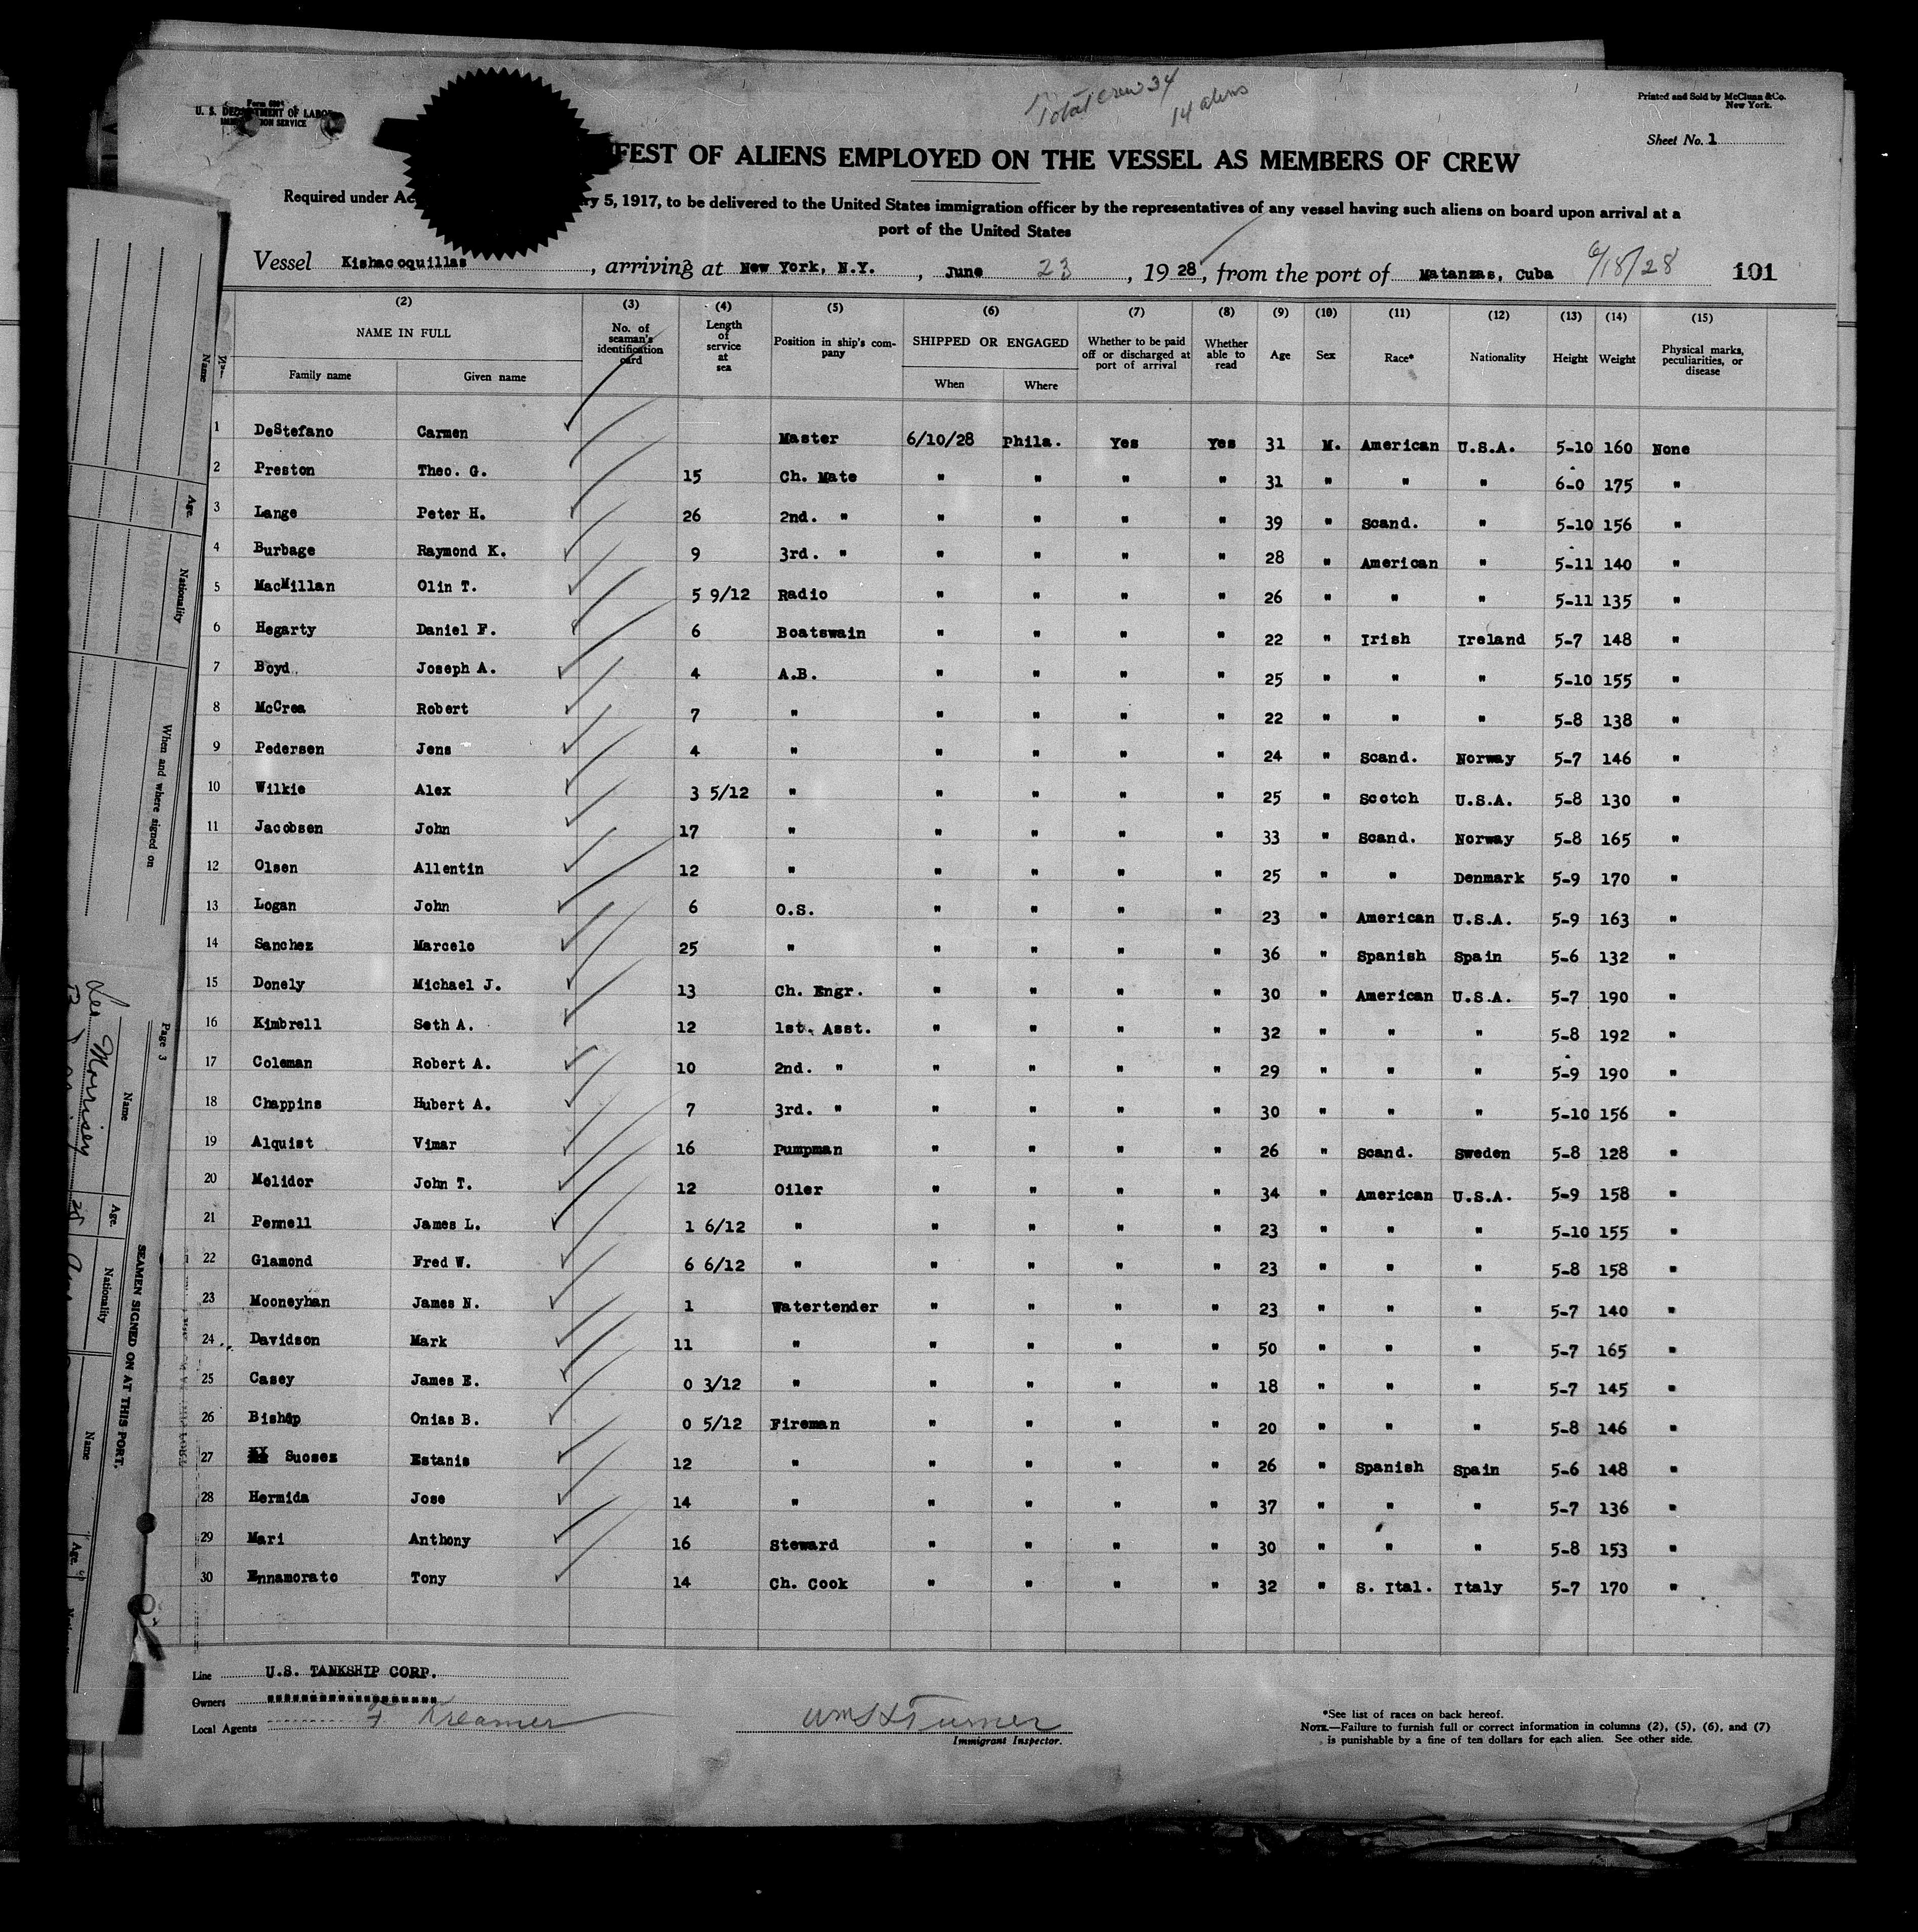 Total crew 34
14 aliens
Form 680
U. S. DEPARTMENT OF LABOR
IMMIGRATION SERVICE
Printed and Sold by McClunn & Co.
New York.
Sheet No. 1
FEST OF ALIENS EMPLOYED ON THE VESSEL AS MEMBERS OF CREW
Required under Ac ry 5, 1917, to be delivered to the United States immigration officer by the representatives of any vessel having such aliens on board upon arrival at a
port of the United States
Vessel Kishacoquillas, arriving at New York, N.Y., June 23, 1928, from the port of Matanzas, Cuba 6/18/28 101
(2) (3) (4) (5) (6) (7) (8) (9) (10) (11) (12) (13) (14) (15)
NAME IN FULL No. of seaman's identification card Length of service at sea Position in ship's company SHIPPED OR ENGAGED Whether to be paid off or discharged at port of arrival Whether able to read Age Sex Race* Nationality Height Weight Physical marks, peculiarities, or disease
Family name Given name When Where
1 DeStefano Carmen Master 6/10/28 Phila. Yes Yes 31 M. American U.S.A. 5-10 160 None
2 Preston Theo. G. 15 Ch. Mate " " " " 31 " " " 6-0 175 "
3 Lange Peter H. 26 2nd. " " " " " 39 " Scand. " 5-10 156 "
4 Burbage Raymond K. 9 3rd. " " " " " 28 " American " 5-11 140 "
5 MacMillan Olin T. 5 9/12 Radio " " " " 26 " " " 5-11 135 "
6 Hegarty Daniel F. 6 Boatswain " " " " 22 " Irish Ireland 5-7 148 "
7 Boyd Joseph A. 4 A.B. " " " " 25 " " " 5-10 155 "
8 McCrea Robert 7 " " " " " 22 " " " 5-8 138 "
9 Pedersen Jens 4 " " " " " 24 " Scand. Norway 5-7 146 "
10 Wilkie Alex 3 5/12 " " " " " 25 " Scotch U.S.A. 5-8 130 "
11 Jacobsen John 17 " " " " " 33 " Scand. Norway 5-8 165 "
12 Olsen Allentin 12 " " " " " 25 " " Denmark 5-9 170 "
13 Logan John 6 O.S. " " " " 23 " American U.S.A. 5-9 163 "
14 Sanchez Marcelo 25 " " " " " 36 " Spanish Spain 5-6 132 "
15 Donely Michael J. 13 Ch. Engr. " " " " 30 " American U.S.A. 5-7 190 "
16 Kimbrell Seth A. 12 1st. Asst. " " " " 32 " " " 5-8 192 "
17 Coleman Robert A. 10 2nd. " " " " " 29 " " " 5-9 190 "
18 Chappins Hubert A. 7 3rd. " " " " " 30 " " " 5-10 156 "
19 Alquist Vimar 16 Pumpman " " " " 26 " Scand. Sweden 5-8 128 "
20 Molidor John T. 12 Oiler " " " " 34 " American U.S.A. 5-9 158 "
21 Pennell James L. 1 6/12 " " " " " 23 " " " 5-10 155 "
22 Glamond Fred W. 6 6/12 " " " " " 23 " " " 5-8 158 "
23 Mooneyhan James N. 1 Watertender " " " " 23 " " " 5-7 140 "
24 Davidson Mark 11 " " " " " 50 " " " 5-7 165 "
25 Casey James E. 0 3/12 " " " " " 18 " " " 5-7 145 "
26 Bishop Onias B. 0 5/12 Fireman " " " " 20 " " " 5-8 146 "
27 Suosez Estanis 12 " " " " " 26 " Spanish Spain 5-6 148 "
28 Hermida Jose 14 " " " " " 37 " " " 5-7 136 "
29 Mari Anthony 16 Steward " " " " 30 " " " 5-8 153 "
30 Ennamorato Tony 14 Ch. Cook " " " " 32 " S. Ital. Italy 5-7 170 "
Line U.S. TANKSHIP CORP.
Owners " " " " " " " " " " " " " " " " " "
Local Agents F Kreamer
Wm H Turner
Immigrant Inspector.
*See list of races on back hereof.
NOTE.—Failure to furnish full or correct information in columns (2), (5), (6), and (7)
is punishable by a fine of ten dollars for each alien. See other side.
Name
Age.
Nationality
When and where signed on
Page 3
SEAMEN SIGNED ON AT THIS PORT.
Name
Age.
Nationality
Leo Morrisey 28
Name
Age.